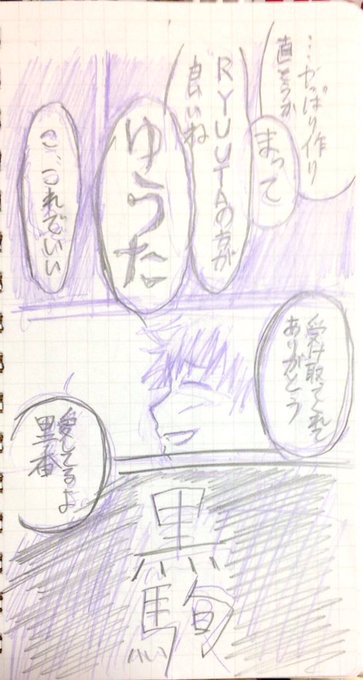 …やっぱり作り
直そうか
まって
RYUUTAの方が
良いね
ゆうた
こ、これでいい
受け取ってくれて
ありがとう
愛してるよ
黒